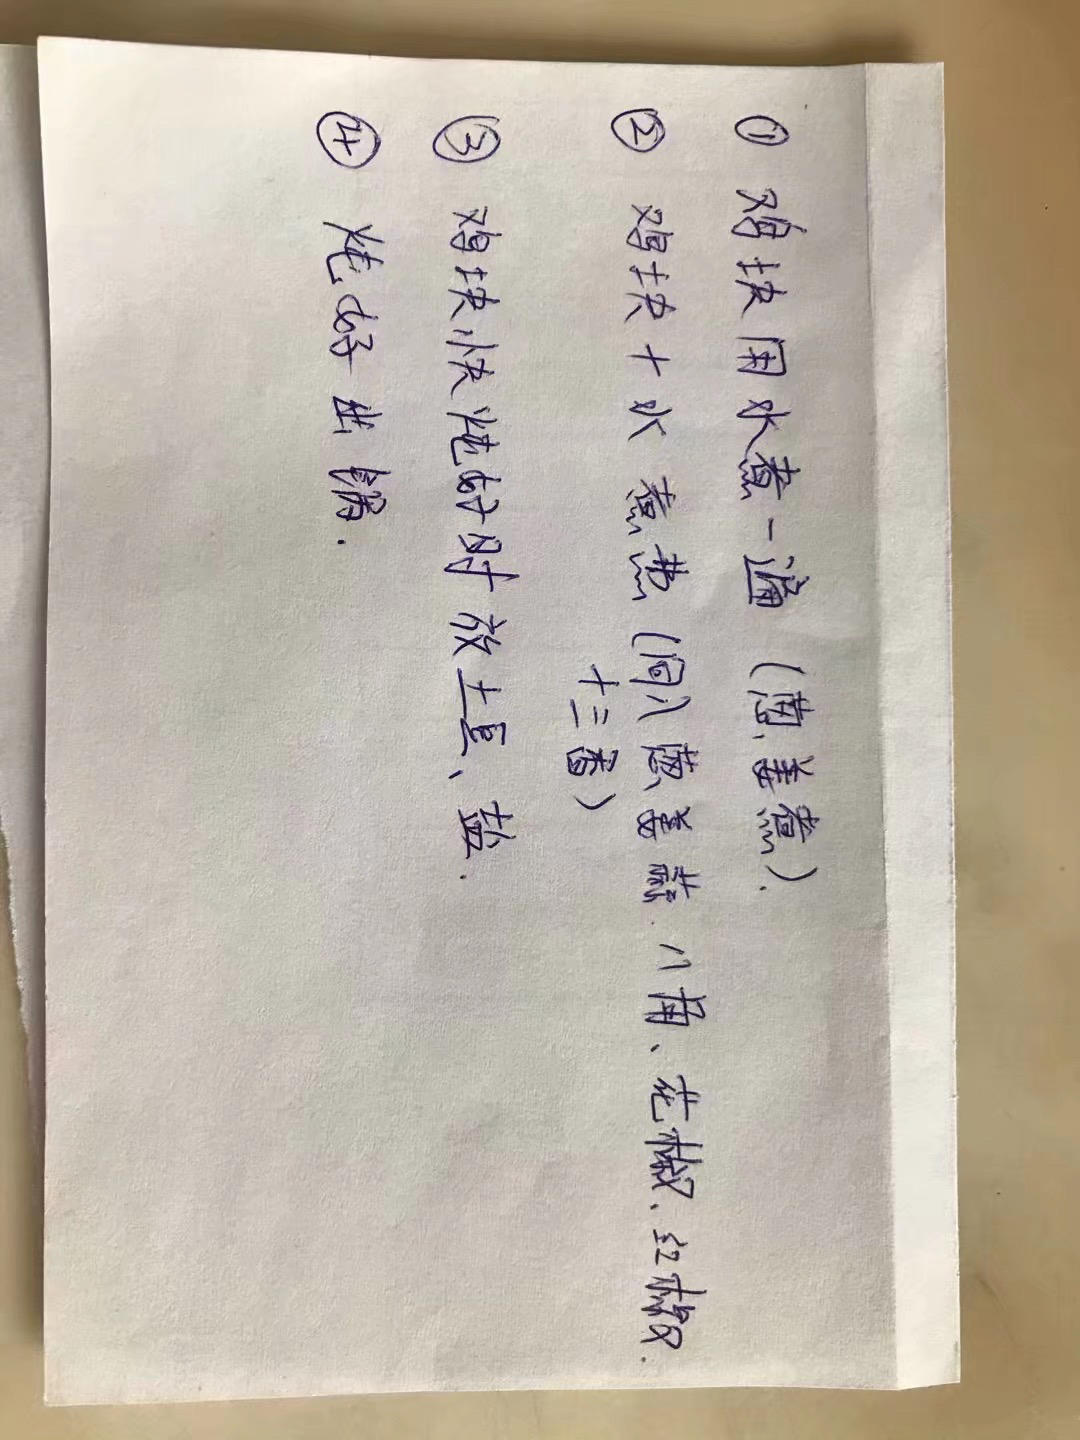 ① 鸡块用水煮一遍（葱、姜煮）.
② 鸡块十水 煮热（同八葱姜蒜.八角、花椒、红椒.
十三香）
③ 鸡块快炖好时放土豆、盐.
④ 炖好出锅.